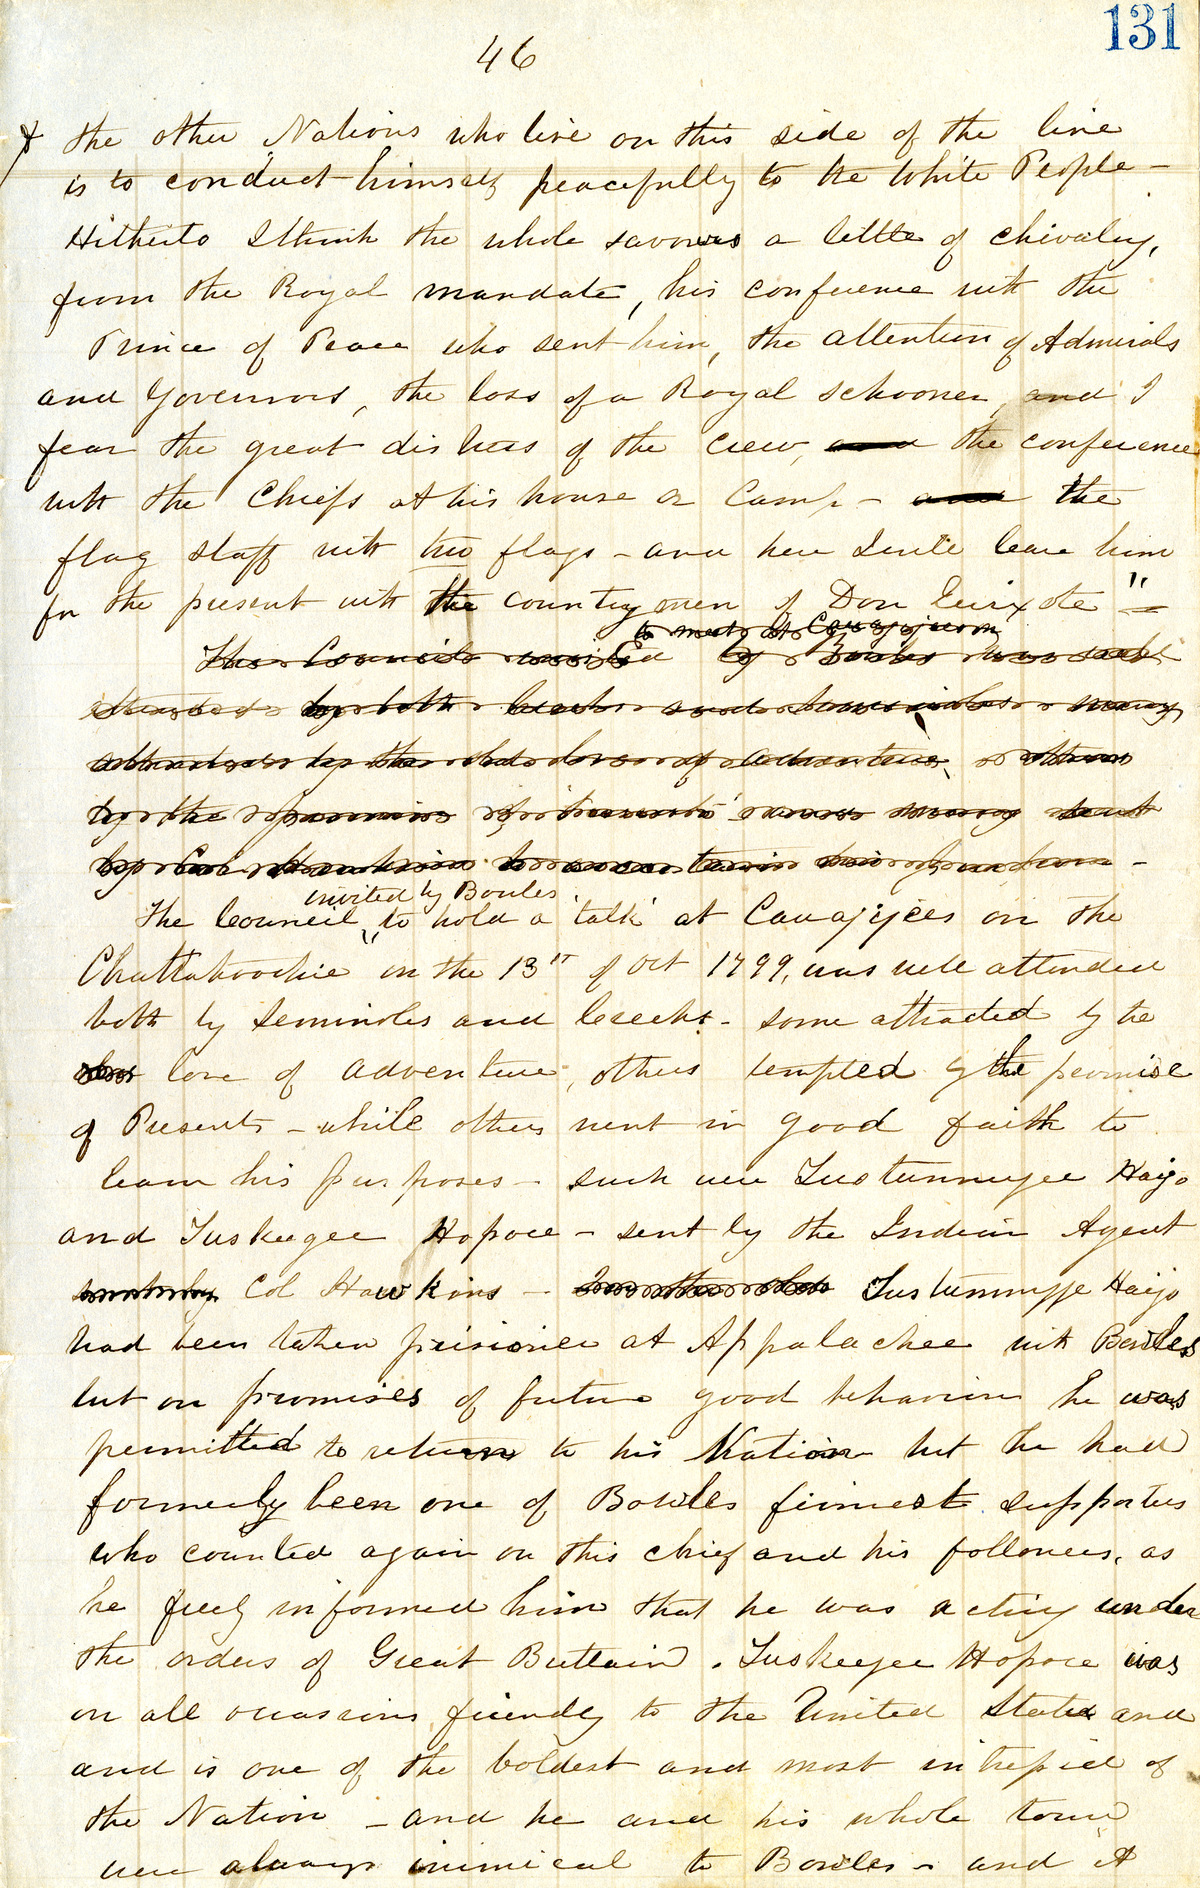 131
46
& the other Nations who live on this side of the line
is to conduct himself peacefully to the White People –
Hitherto I think the whole savours a little of chivalry,
from the Royal mandate, his conference with the
Prince of Peace who sent him, the attention of Admirals
and Governors, the loss of a Royal schooner, and I
fear the great distress of the crew, and the conference
with the Chiefs at his house or Camp – and the
flag staff with two flags – and here I will leave him
for the present with the countrymen of Don Quixote"
to meet at
The Council invited by Bowles was well
attended by both Creeks and Seminoles many
attracted by the love of adventure others
by the promises of presents many sent
by Col Hawkins to ascertain his
invited by Bowles
The Council, to hold a 'talk' at Cavajijees on the
Chattahoochie on the 13" of Oct 1799, was well attended
both by Seminoles and Creeks – some attracted by the
love of adventure, others tempted by the promise
of Presents – while others went in good faith to
learn his purposes – such were Tustunnugee Hajo
and Tuskeegee Hopoee – sent by the Indian Agent
Col Hawkins – Tustunnugge Hajo
had been taken prisionier at Appalachee with Bowles
but on promises of future good behavior he was
permitted to return to his Nation but he had
formerly been one of Bowles firmest supporters
who counted again on this chief and his followers, as
he freely informed him that he was acting under
the orders of Great Brittain. Tuskeegee Hopoee was
on all occasions friendly to the United States and
and is one of the boldest and most intrepid of
the Nation – and he and his whole town
were always inimical to Bowles – and it